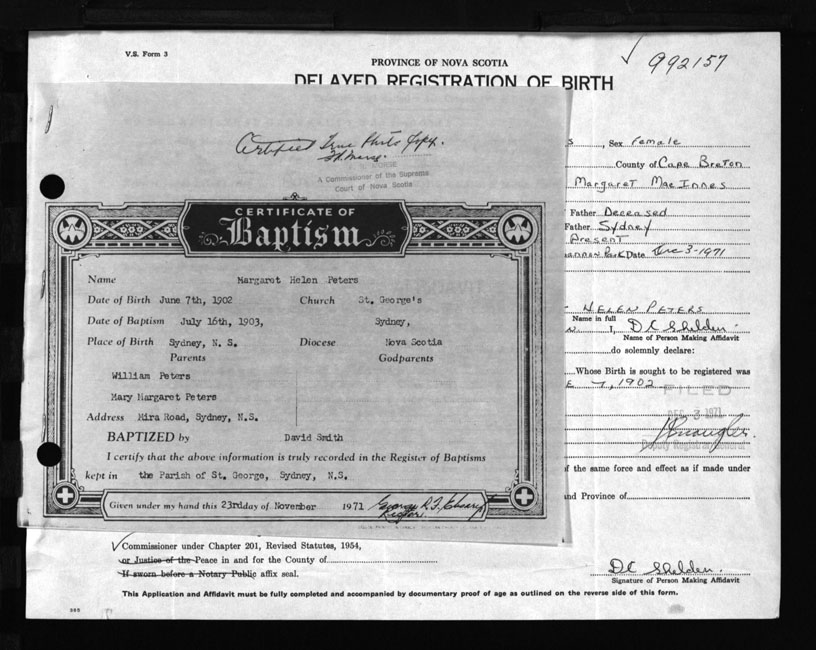 V.S. Form 3
PROVINCE OF NOVA SCOTIA
992157
DELAYED REGISTRATION OF BIRTH
Certified True Photo Copy.
A Commissioner of the Supreme
Court of Nova Scotia
s, Sex Female
County of Cape Breton
Margaret MacInnes
Father Deceased
Father Sydney
Present
Date Dec 3-1971
CERTIFICATE OF
Baptism
Name Margaret Helen Peters
Date of Birth June 7th, 1902 Church St. George's
Date of Baptism July 16th, 1903, Sydney,
Place of Birth Sydney, N. S. Diocese Nova Scotia
Parents Godparents
William Peters
Mary Margaret Peters
Address Mira Road, Sydney, N.S.
BAPTIZED by David Smith
I certify that the above information is truly recorded in the Register of Baptisms
kept in the Parish of St. George, Sydney, N.S.
Given under my hand this 23rd day of November 1971
Rector
HELEN PETERS
Name in full
I, D C Shelden.
Name of Person Making Affidavit
do solemnly declare:
Whose Birth is sought to be registered was
E 7, 1902
FILED
DEC 3 1971
Deputy Registrar General
f the same force and effect as if made under
nd Province of
Commissioner under Chapter 201, Revised Statutes, 1954,
or Justice of the Peace in and for the County of
If sworn before a Notary Public affix seal.
D C Shelden.
Signature of Person Making Affidavit
This Application and Affidavit must be fully completed and accompanied by documentary proof of age as outlined on the reverse side of this form.